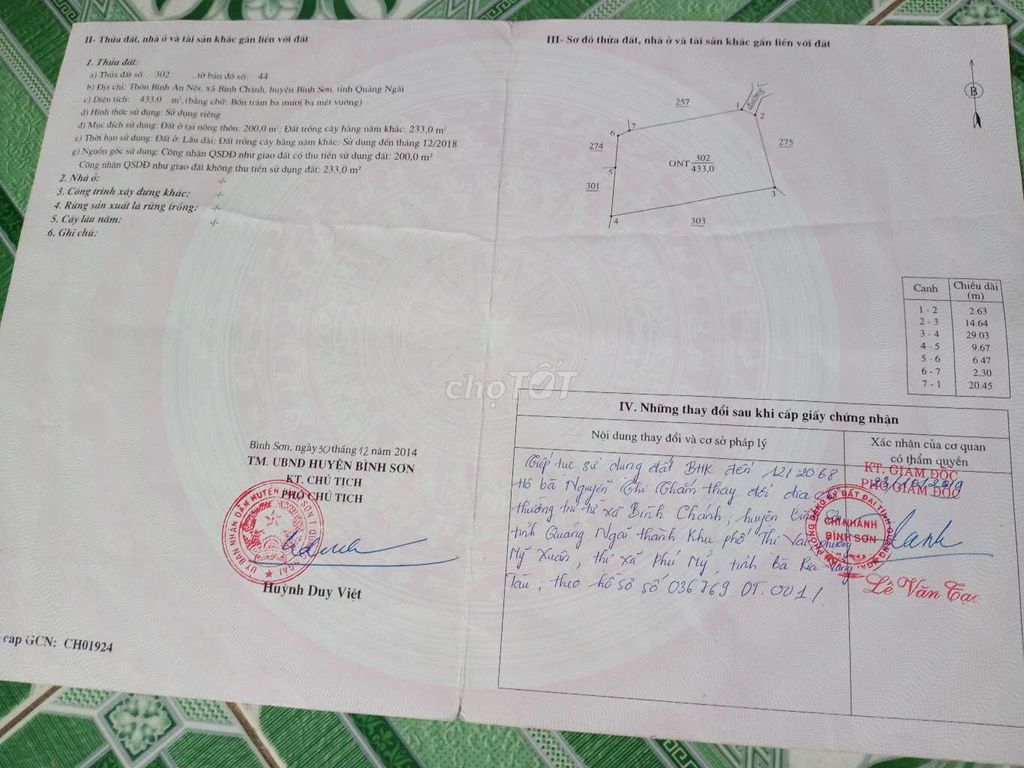 II- Thửa đất, nhà ở và tài sản khác gắn liền với đất
1. Thửa đất:
a) Thửa đất số: 302 , tờ bản đồ số: 44
b) Địa chỉ: Thôn Bình An Nội, xã Bình Chánh, huyện Bình Sơn, tỉnh Quảng Ngãi
c) Diện tích: 433,0 m², (bằng chữ: Bốn trăm ba mươi ba mét vuông)
d) Hình thức sử dụng: Sử dụng riêng
đ) Mục đích sử dụng: Đất ở tại nông thôn: 200,0 m²; Đất trồng cây hàng năm khác: 233,0 m²
e) Thời hạn sử dụng: Đất ở: Lâu dài; Đất trồng cây hàng năm khác: Sử dụng đến tháng 12/2018
g) Nguồn gốc sử dụng: Công nhận QSDĐ như giao đất có thu tiền sử dụng đất: 200,0 m²
Công nhận QSDĐ như giao đất không thu tiền sử dụng đất: 233,0 m²
2. Nhà ở: -/-
3. Công trình xây dựng khác: -/-
4. Rừng sản xuất là rừng trồng: -/-
5. Cây lâu năm: -/-
6. Ghi chú:
Bình Sơn, ngày 30 tháng 12 năm 2014
TM. UBND HUYỆN BÌNH SƠN
KT. CHỦ TỊCH
PHÓ CHỦ TỊCH
Huỳnh Duy Việt
cấp GCN: CH01924
III- Sơ đồ thửa đất, nhà ở và tài sản khác gắn liền với đất
B
257
1
đường
2
7
6
274
275
ONT 302
433,0
5
301
3
4
303
Cạnh Chiều dài
(m)
1 - 2 2.63
2 - 3 14.64
3 - 4 29.03
4 - 5 9.67
5 - 6 6.47
6 - 7 2.30
7 - 1 20.45
chợTỐT
IV. Những thay đổi sau khi cấp giấy chứng nhận
Nội dung thay đổi và cơ sở pháp lý
Xác nhận của cơ quan
có thẩm quyền
Tiếp tục sử dụng đất BHK đến 12/2068
Hộ bà Nguyễn Thị Thắm thay đổi địa
thường trú từ xã Bình Chánh, huyện Bình
tỉnh Quảng Ngãi thành Khu phố Thị Vải, phường
Mỹ Xuân, thị xã Phú Mỹ, tỉnh Bà Rịa Vũng
Tàu, theo hồ sơ số 036769.DT.001/.
KT. GIÁM ĐỐC
23/10/2019
PHÓ GIÁM ĐỐC
CHI NHÁNH
BÌNH SƠN
Lê Văn Tạc